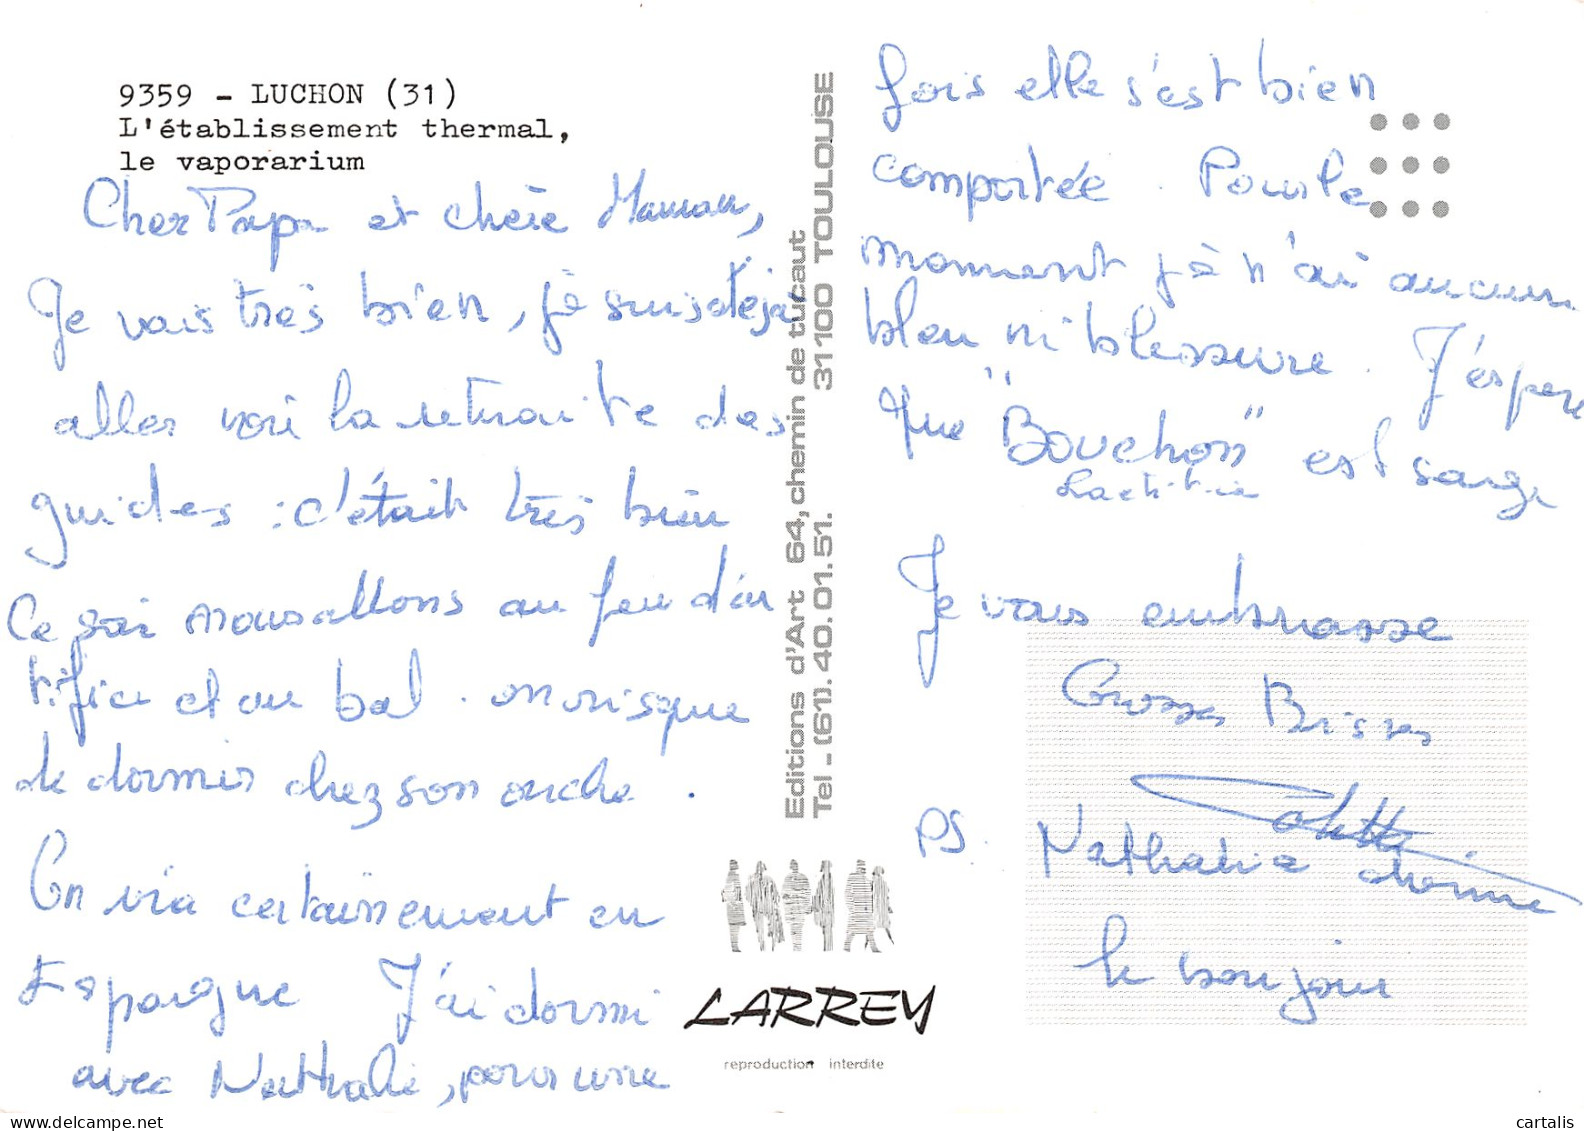 9359 - LUCHON (31)
L'établissement thermal,
le vaporarium
Cher Papa et chère Maman,
Je vais très bien, je suis déjà
aller voir la retraite des
guides : c'était très bien
Ce soir nous allons au feu d'ar
tifice et au bal . on risque
de dormir chez son oncle .
On ira certainement en
Espagne J'ai dormi
avec Nathalie, pour une
Editions d'Art 64, chemin de tucaut
Tel - (61). 40.01.51. 31100 TOULOUSE
LARREY
reproduction interdite
fois elle s'est bien
comportée . Pour le
moment je n'ai aucun
bleu ni blessure . J'espère
que "Bouchon" est sage
Laetitia
Je vous embrasse
Grosses Bises
PS. Nathalie donne
le bonjour
cartalis
www.delcampe.net